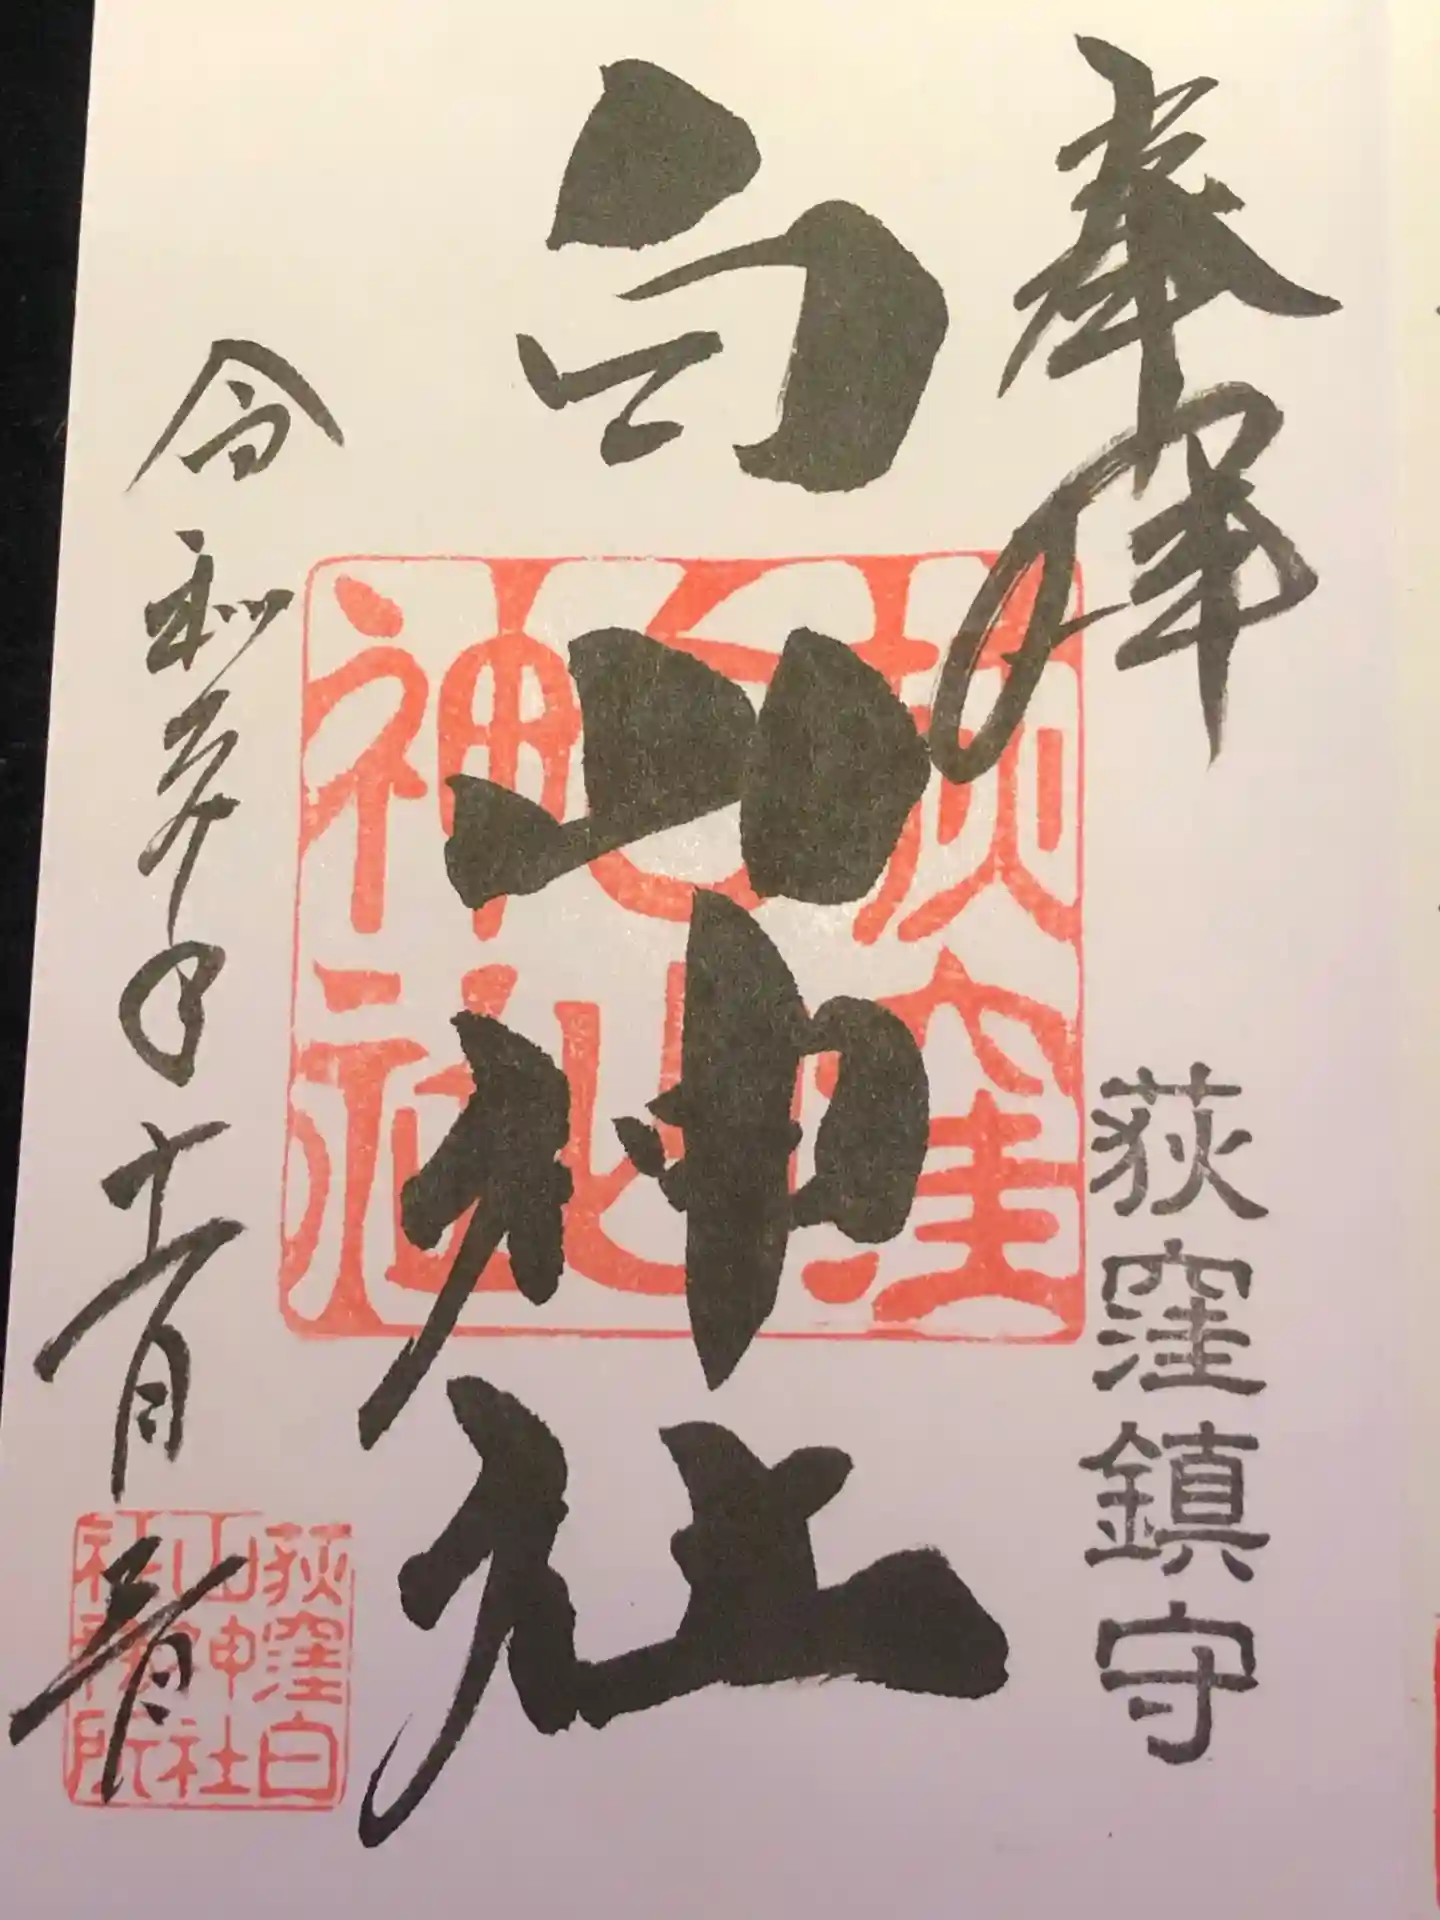 奉拝
荻窪鎮守
白山神社
荻窪
白山
神社
令和五年十一月
荻窪白
山神社
社務所